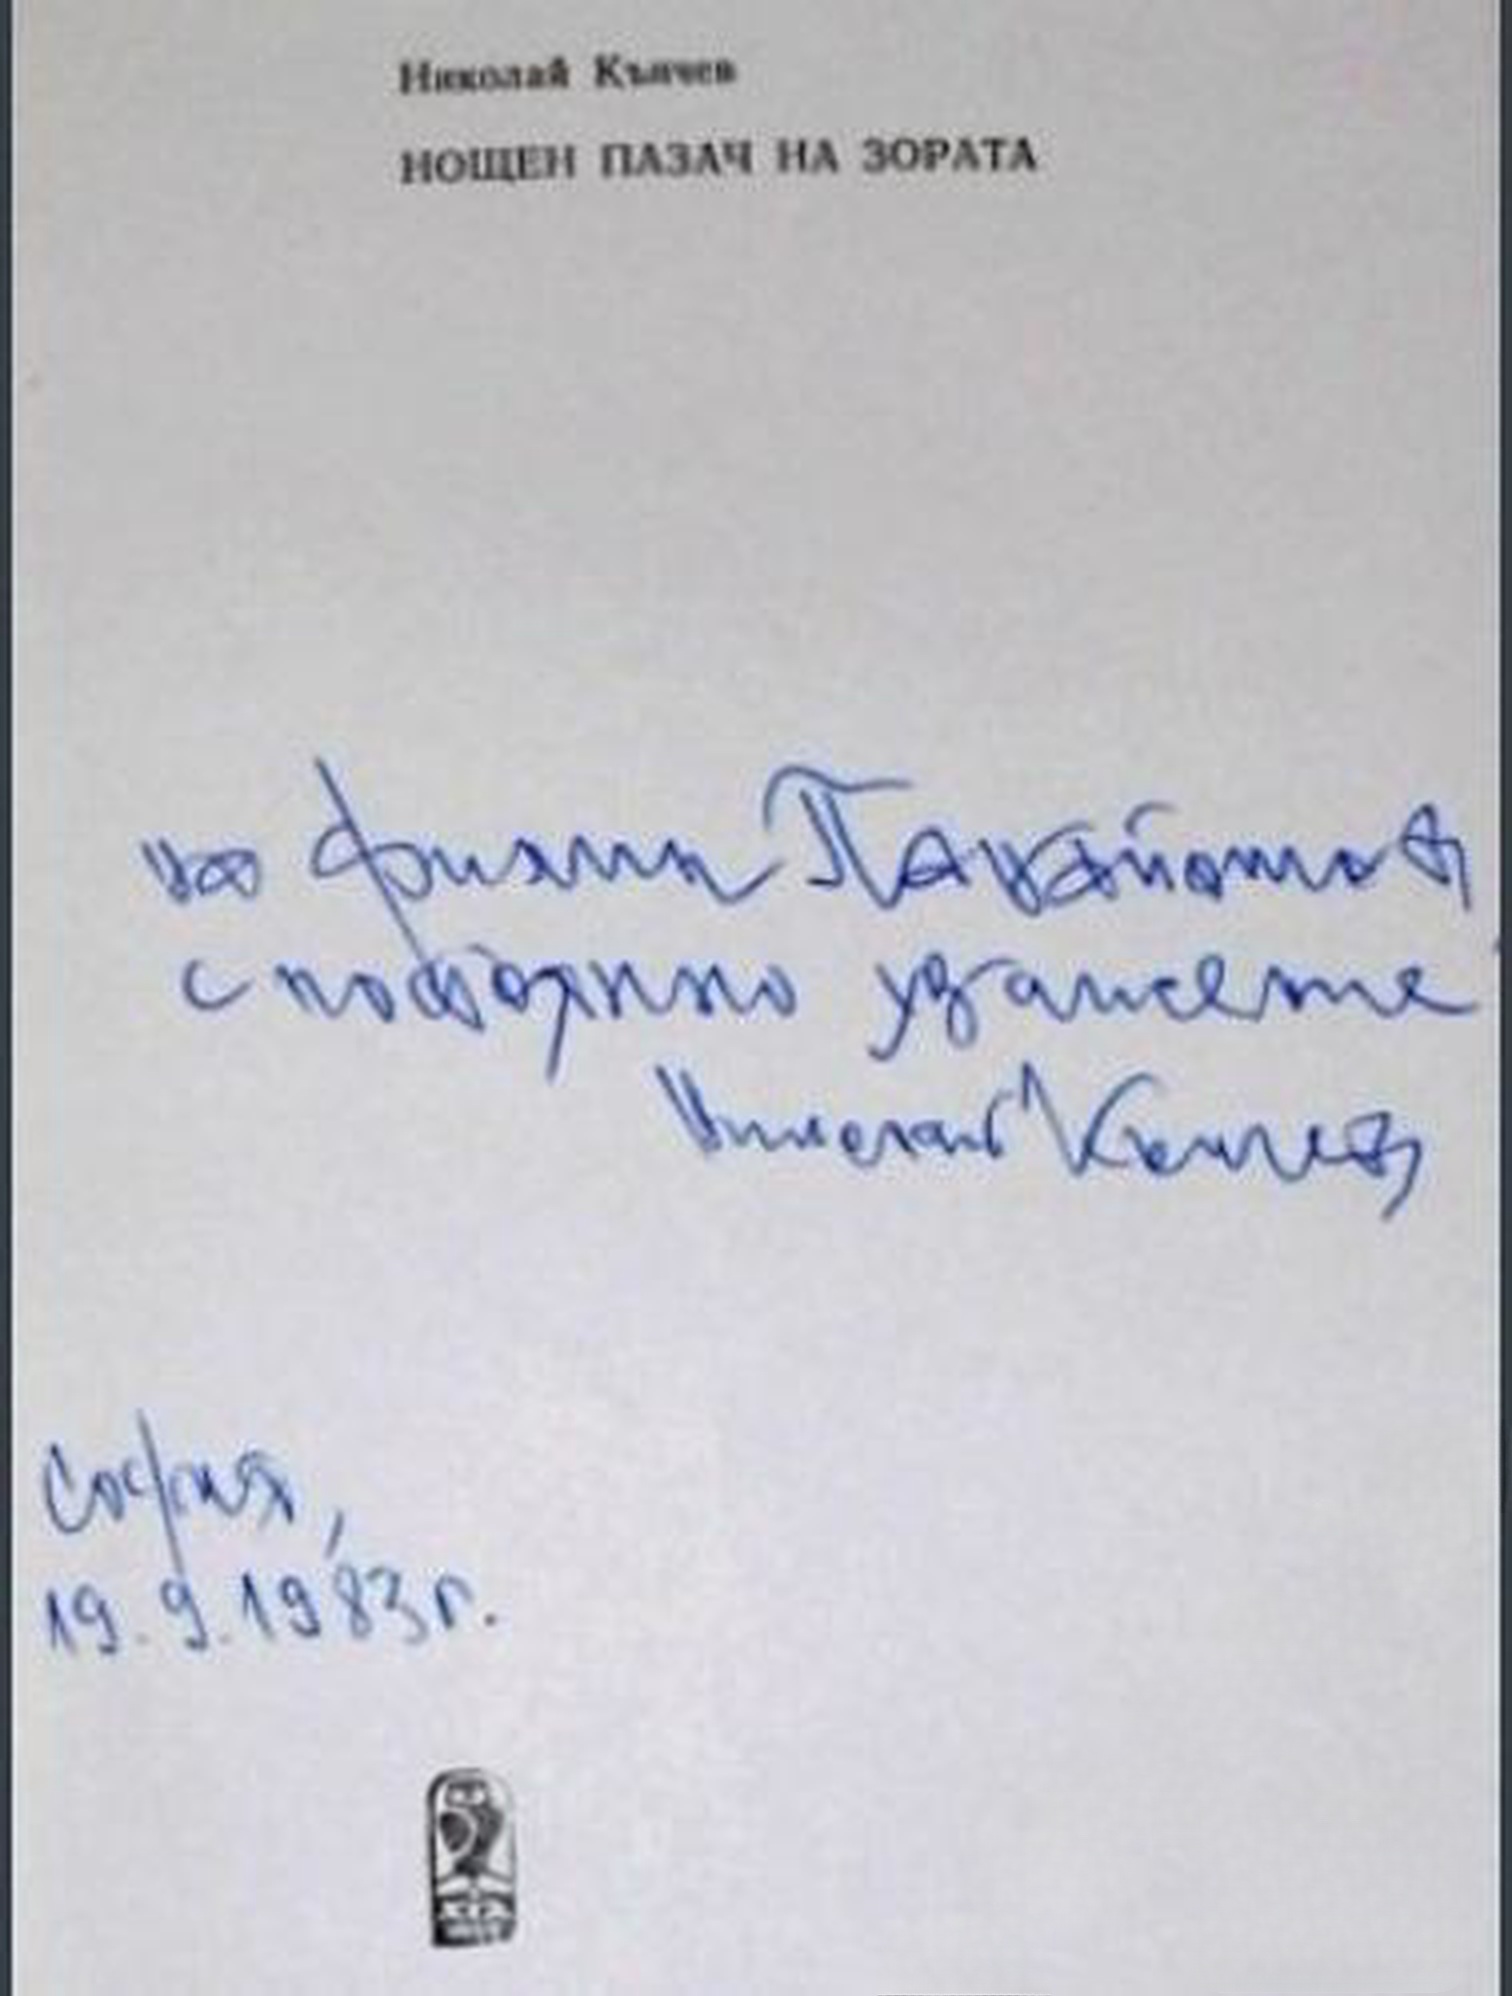 Николай Кънчев
НОЩЕН ПАЗАЧ НА ЗОРАТА
на Филип Панайотов
с повторно уважение
Николай Кънчев
София,
19.9.1983 г.